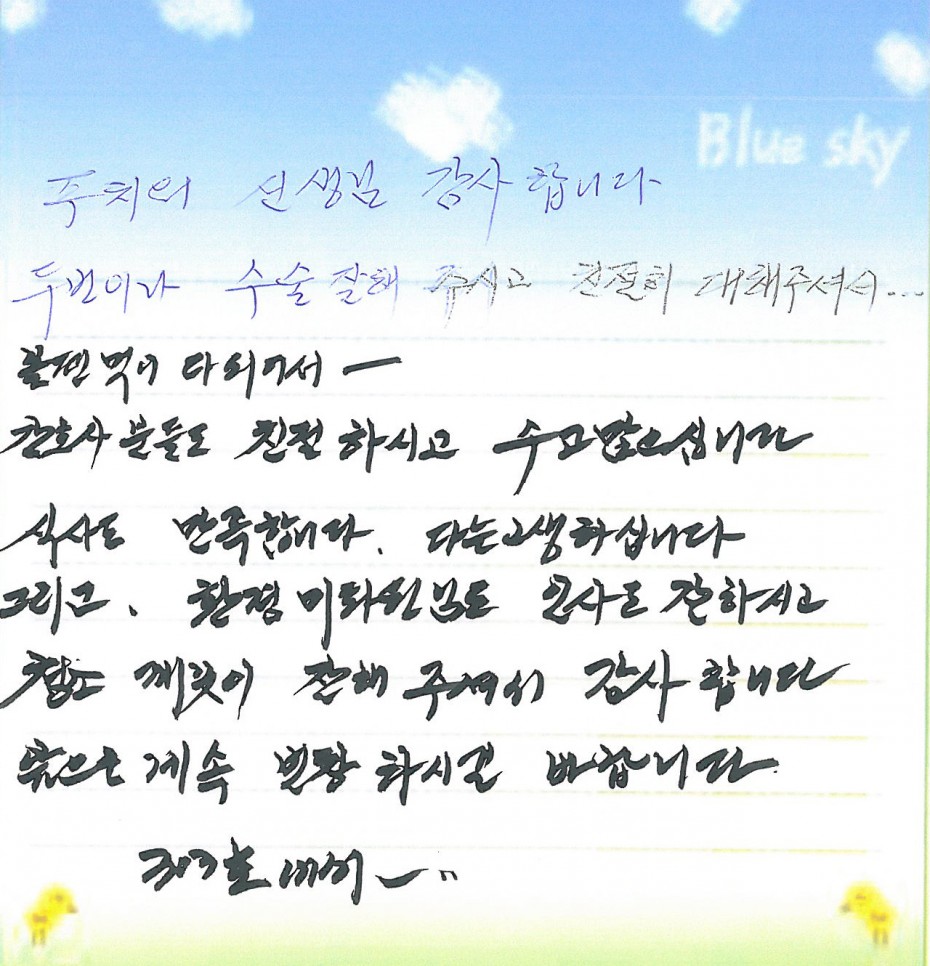 Blue sky
주치의 선생님 감사 합니다
두번이나 수술 잘해 주시고 친절히 대해주셔서...
볼펜 먹이 다 되어서 ー
간호사 분들도 친절 하시고 수고 많으십니다
식사도 만족합니다. 다는 고생하십니다
그리고. 환경 미화원님도 인사도 잘하시고
청소 깨끗이 잘해 주셔서 감사 합니다
계속 번창 하시길 바랍니다.
303호에서 ~"